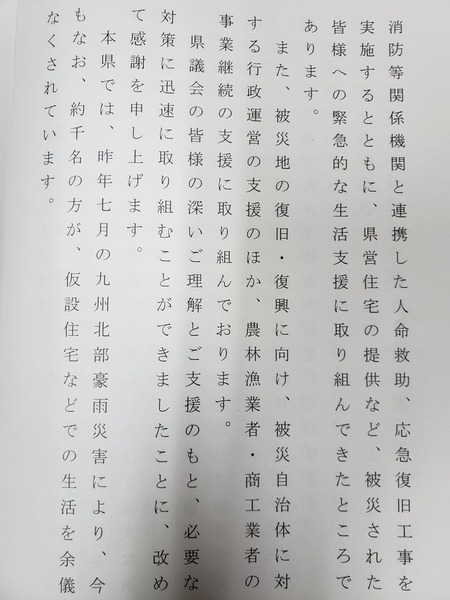 消防等関係機関と連携した人命救助、応急復旧工事を
実施するとともに、県営住宅の提供など、被災された
皆様への緊急的な生活支援に取り組んできたところで
あります。
また、被災地の復旧・復興に向け、被災自治体に対
する行政運営の支援のほか、農林漁業者・商工業者の
事業継続の支援に取り組んでおります。
県議会の皆様の深いご理解とご支援のもと、必要な
対策に迅速に取り組むことができましたことに、改め
て感謝を申し上げます。
本県では、昨年七月の九州北部豪雨災害により、今
もなお、約千名の方が、仮設住宅などでの生活を余儀
なくされています。